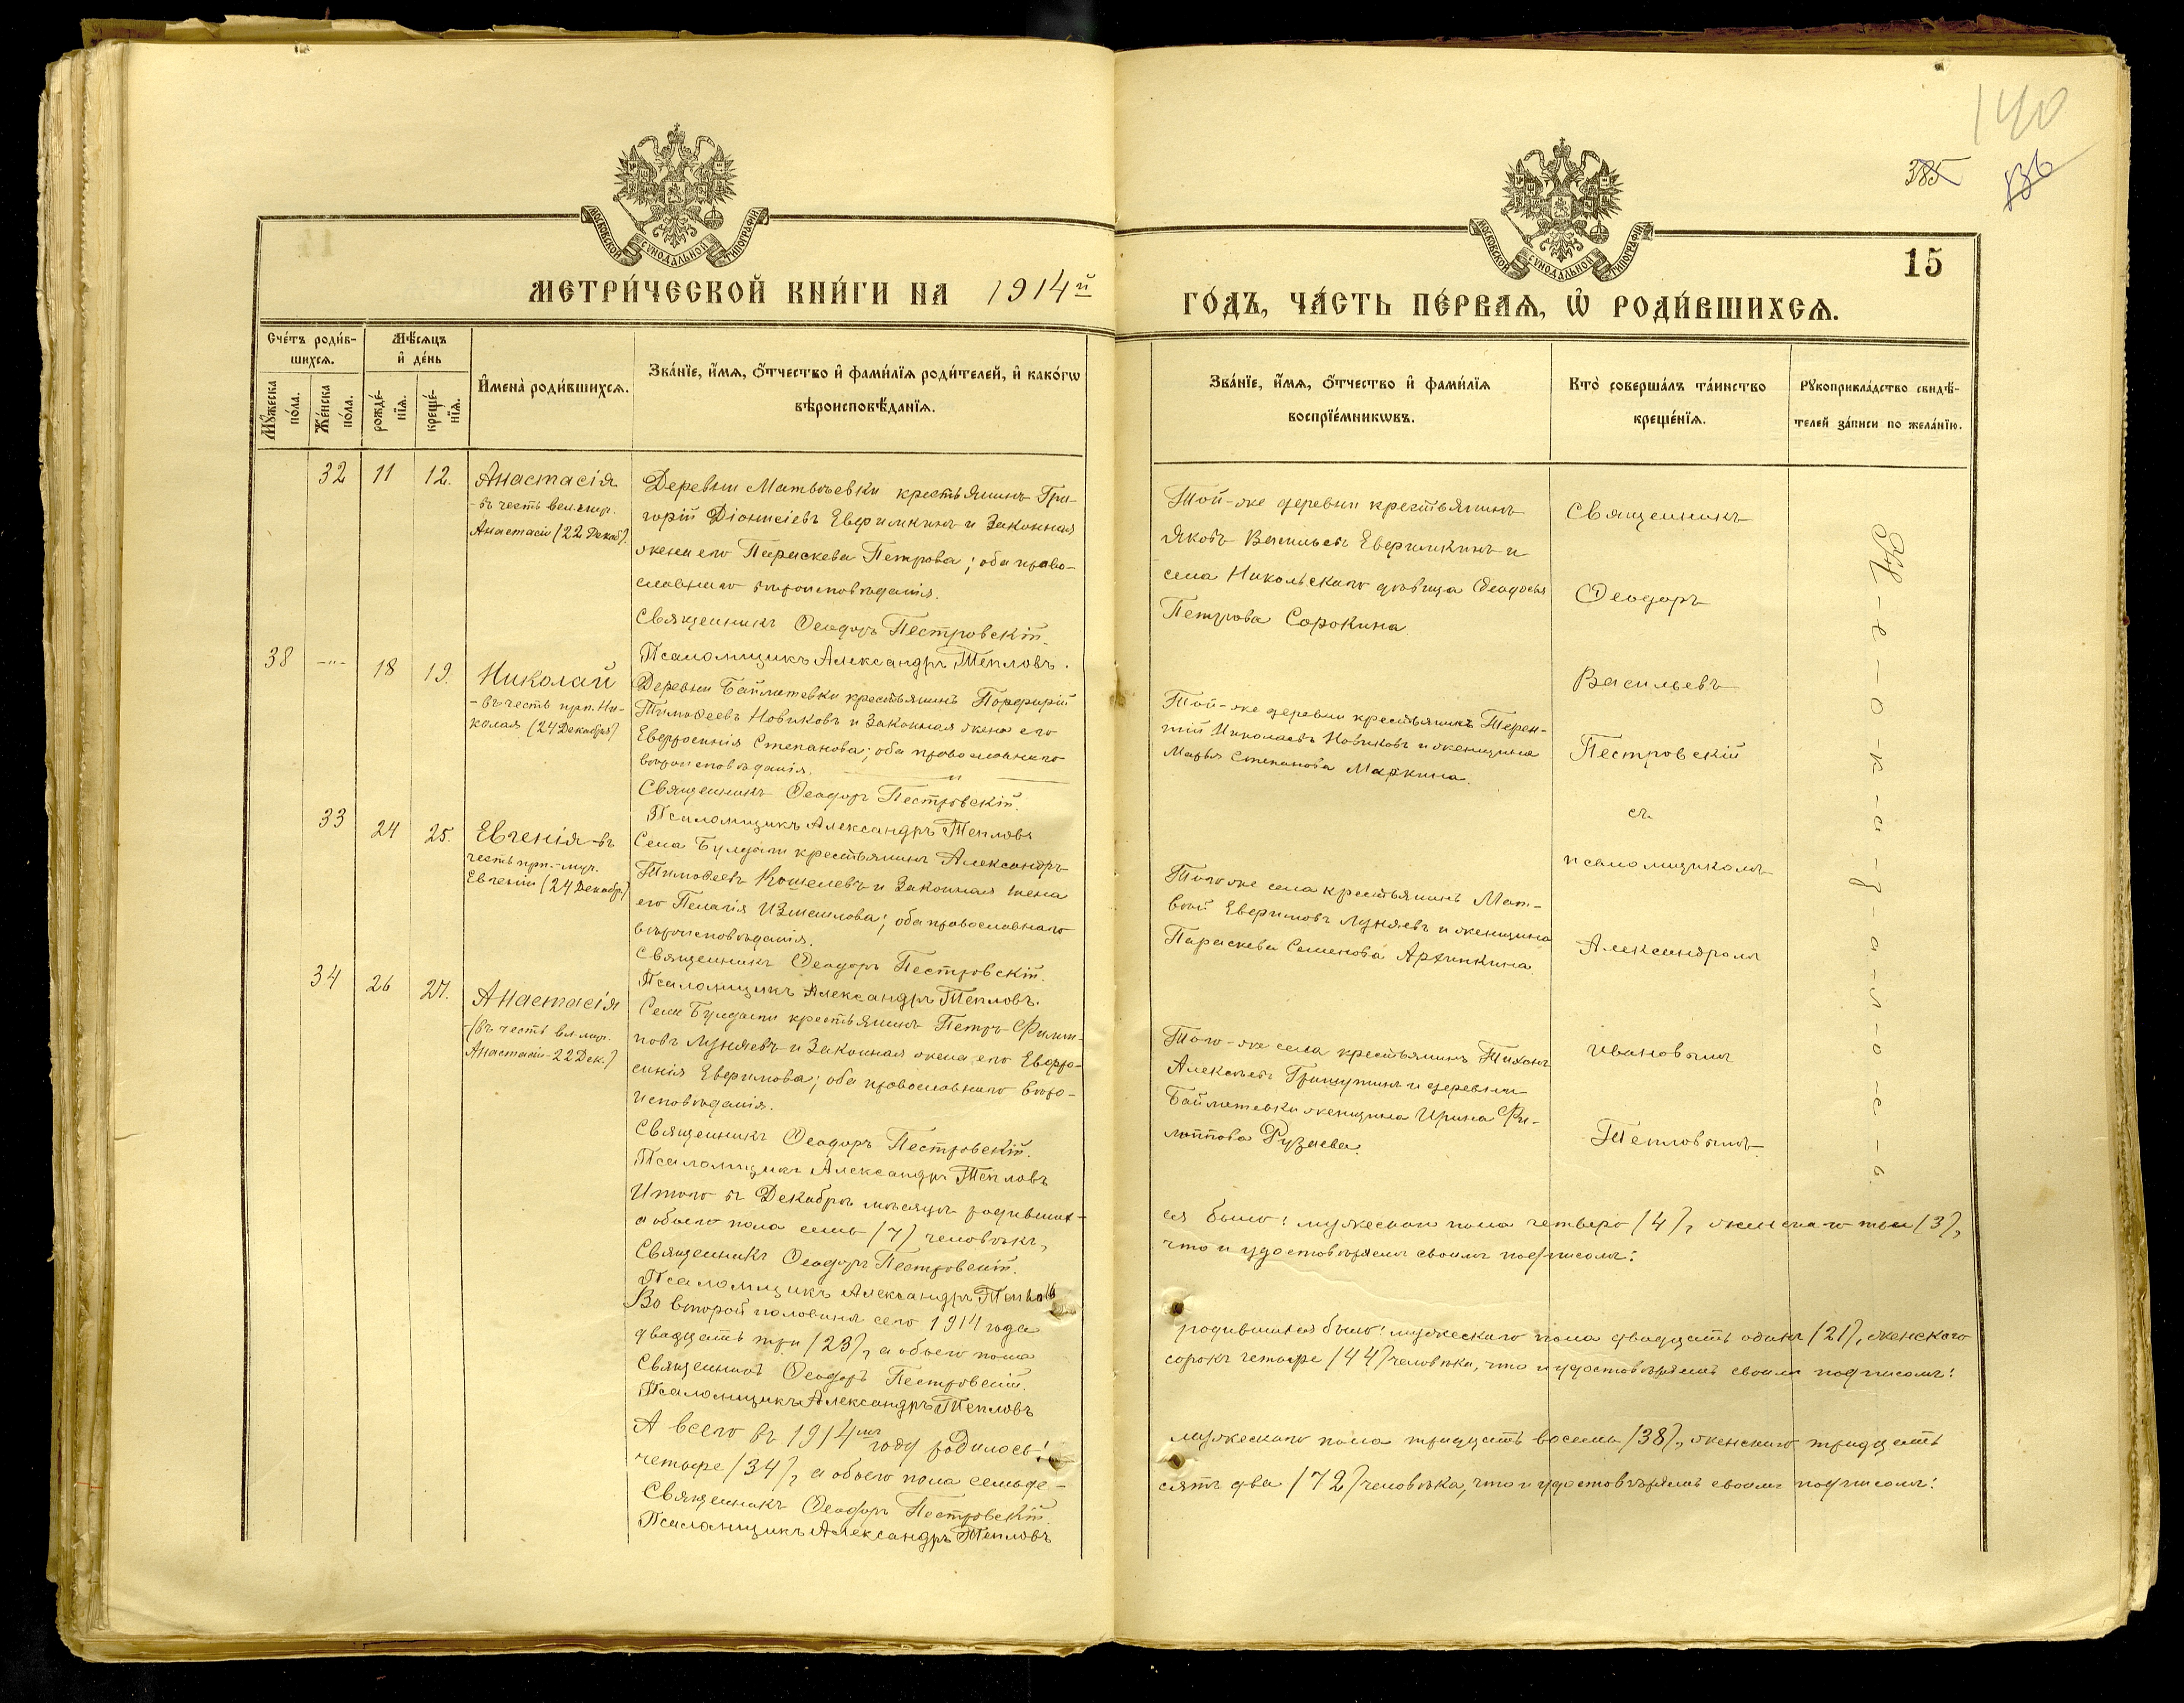 140
385
136
15
МОСКОВСКОЙ СУНОДАЛЬНОЙ ТИПОГРАФІИ
МОСКОВСКОЙ СУНОДАЛЬНОЙ ТИПОГРАФІИ
МЕТРИ́ЧЕСКОЙ КНИ́ГИ НА 1914й
ГО́ДЪ, ЧА́СТЬ ПЕ́РВАѦ, Ѽ РОДИ́ВШИХСѦ.
Сче́тъ роди́в-
шихсѧ.
Мꙋ́жеска
по́ла.
Же́нска
по́ла.
Мѣ́сѧцъ
и҆ де́нь
рожде́-
нїѧ.
креще́-
нїѧ.
И҆мена̀ роди́вшихсѧ.
Зва́нїе, и҆́мѧ, ѻ҆́тчество и҆ фами́лїѧ роди́телей, и҆ како́гѡ
вѣроисповѣ́данїѧ.
Зва́нїе, и҆́мѧ, ѻ҆́тчество и҆ фами́лїѧ
воспрїе́мникѡвъ.
Кто̀ соверша́лъ та́инство
креще́нїѧ.
Рꙋкоприкла́дство свидѣ́-
телей за́писи по жела́нїю.
32 11 12. Анастасія
- въ честь вел. мур.
Анастасіи (22 Декаб).
Деревни Матвѣевки крестьянинъ Гри-
горій Діонисіевъ Евфимкинъ и законная
жена его Параскева Петрова; оба право-
славнаго вѣроисповѣданія.
Священникъ Ѳеодоръ Пестровскій.
Псаломщикъ Александръ Тепловъ.
Той-же деревни крестьянинъ
Яковъ Васильевъ Евфимкинъ и
села Никольскаго дѣвица Ѳеодосья
Петрова Сорокина.
38 -"- 18 19. Николай
- въ честь прп. Ни-
колая (24 Декабря)
Деревни Байматевки крестьянинъ Порфирій
Тимоѳеевъ Новиковъ и законная жена его
Евфросинія Степанова; оба православнаго
вѣроисповѣданія. "
Священникъ Ѳеодоръ Пестровскій.
Псаломщикъ Александръ Тепловъ
Той-же деревни крестьянинъ Терен-
тій Николаевъ Новиковъ и женщина
Марья Степанова Маркина.
33 24 25. Евгенія - въ
честь прп.-муч.
Евгеніи (24 Декабр.)
Села Булдаги крестьянинъ Александръ
Тимоѳеевъ Кошелевъ и законная жена
его Пелагія Измаилова; оба православнаго
вѣроисповѣданія.
Священникъ Ѳеодоръ Пестровскій.
Псаломщикъ Александръ Тепловъ.
Того же села крестьянинъ Мат-
вѣй Евфимовъ Луняевъ и женщина
Параскева Семенова Артинкина.
34 26 27. Анастасія
- (въ честь вл. мур.
Анастасіи - 22 Дек.)
Села Булдаги крестьянинъ Петръ Филип-
повъ Луняевъ и законная жена его Евфро-
синія Евфимова; оба православнаго вѣро-
исповѣданія.
Священникъ Ѳеодоръ Пестровскій.
Псаломщикъ Александръ Тепловъ
Того-же села крестьянинъ Тихонъ
Алексѣевъ Гришутинъ и деревни
Байматевки женщина Ирина Фи-
липпова Рузаева.
Священникъ
Ѳеодоръ
Васильевъ
Пестровскій
съ
псаломщикомъ
Александромъ
Ивановымъ
Тепловымъ
Н-е-о-к-а-з-а-л-о-с-ь.
Итого въ Декабрѣ мѣсяцѣ родивших-
ся было: мужескаго пола четверо (4), женскаго три (3),
а обоего пола семь (7) человѣкъ,
что и удостовѣряемъ своимъ подписомъ:
Священникъ Ѳеодоръ Пестровскій.
Псаломщикъ Александръ Тепловъ
Во второй половинѣ сего 1914 года
родившихся было: мужескаго пола двадцать одинъ (21), женскаго
двадцать три (23), а обоего пола
сорокъ четыре (44) человѣка, что и удостовѣряемъ своимъ подписомъ:
Священникъ Ѳеодоръ Пестровскій.
Псаломщикъ Александръ Тепловъ
А всего въ 1914мъ году родилось:
мужескаго пола тридцать восемь (38), женскаго тридцать
четыре (34), а обоего пола семьде-
сятъ два (72) человѣка, что и удостовѣряемъ своимъ подписомъ:
Священникъ Ѳеодоръ Пестровскій.
Псаломщикъ Александръ Тепловъ